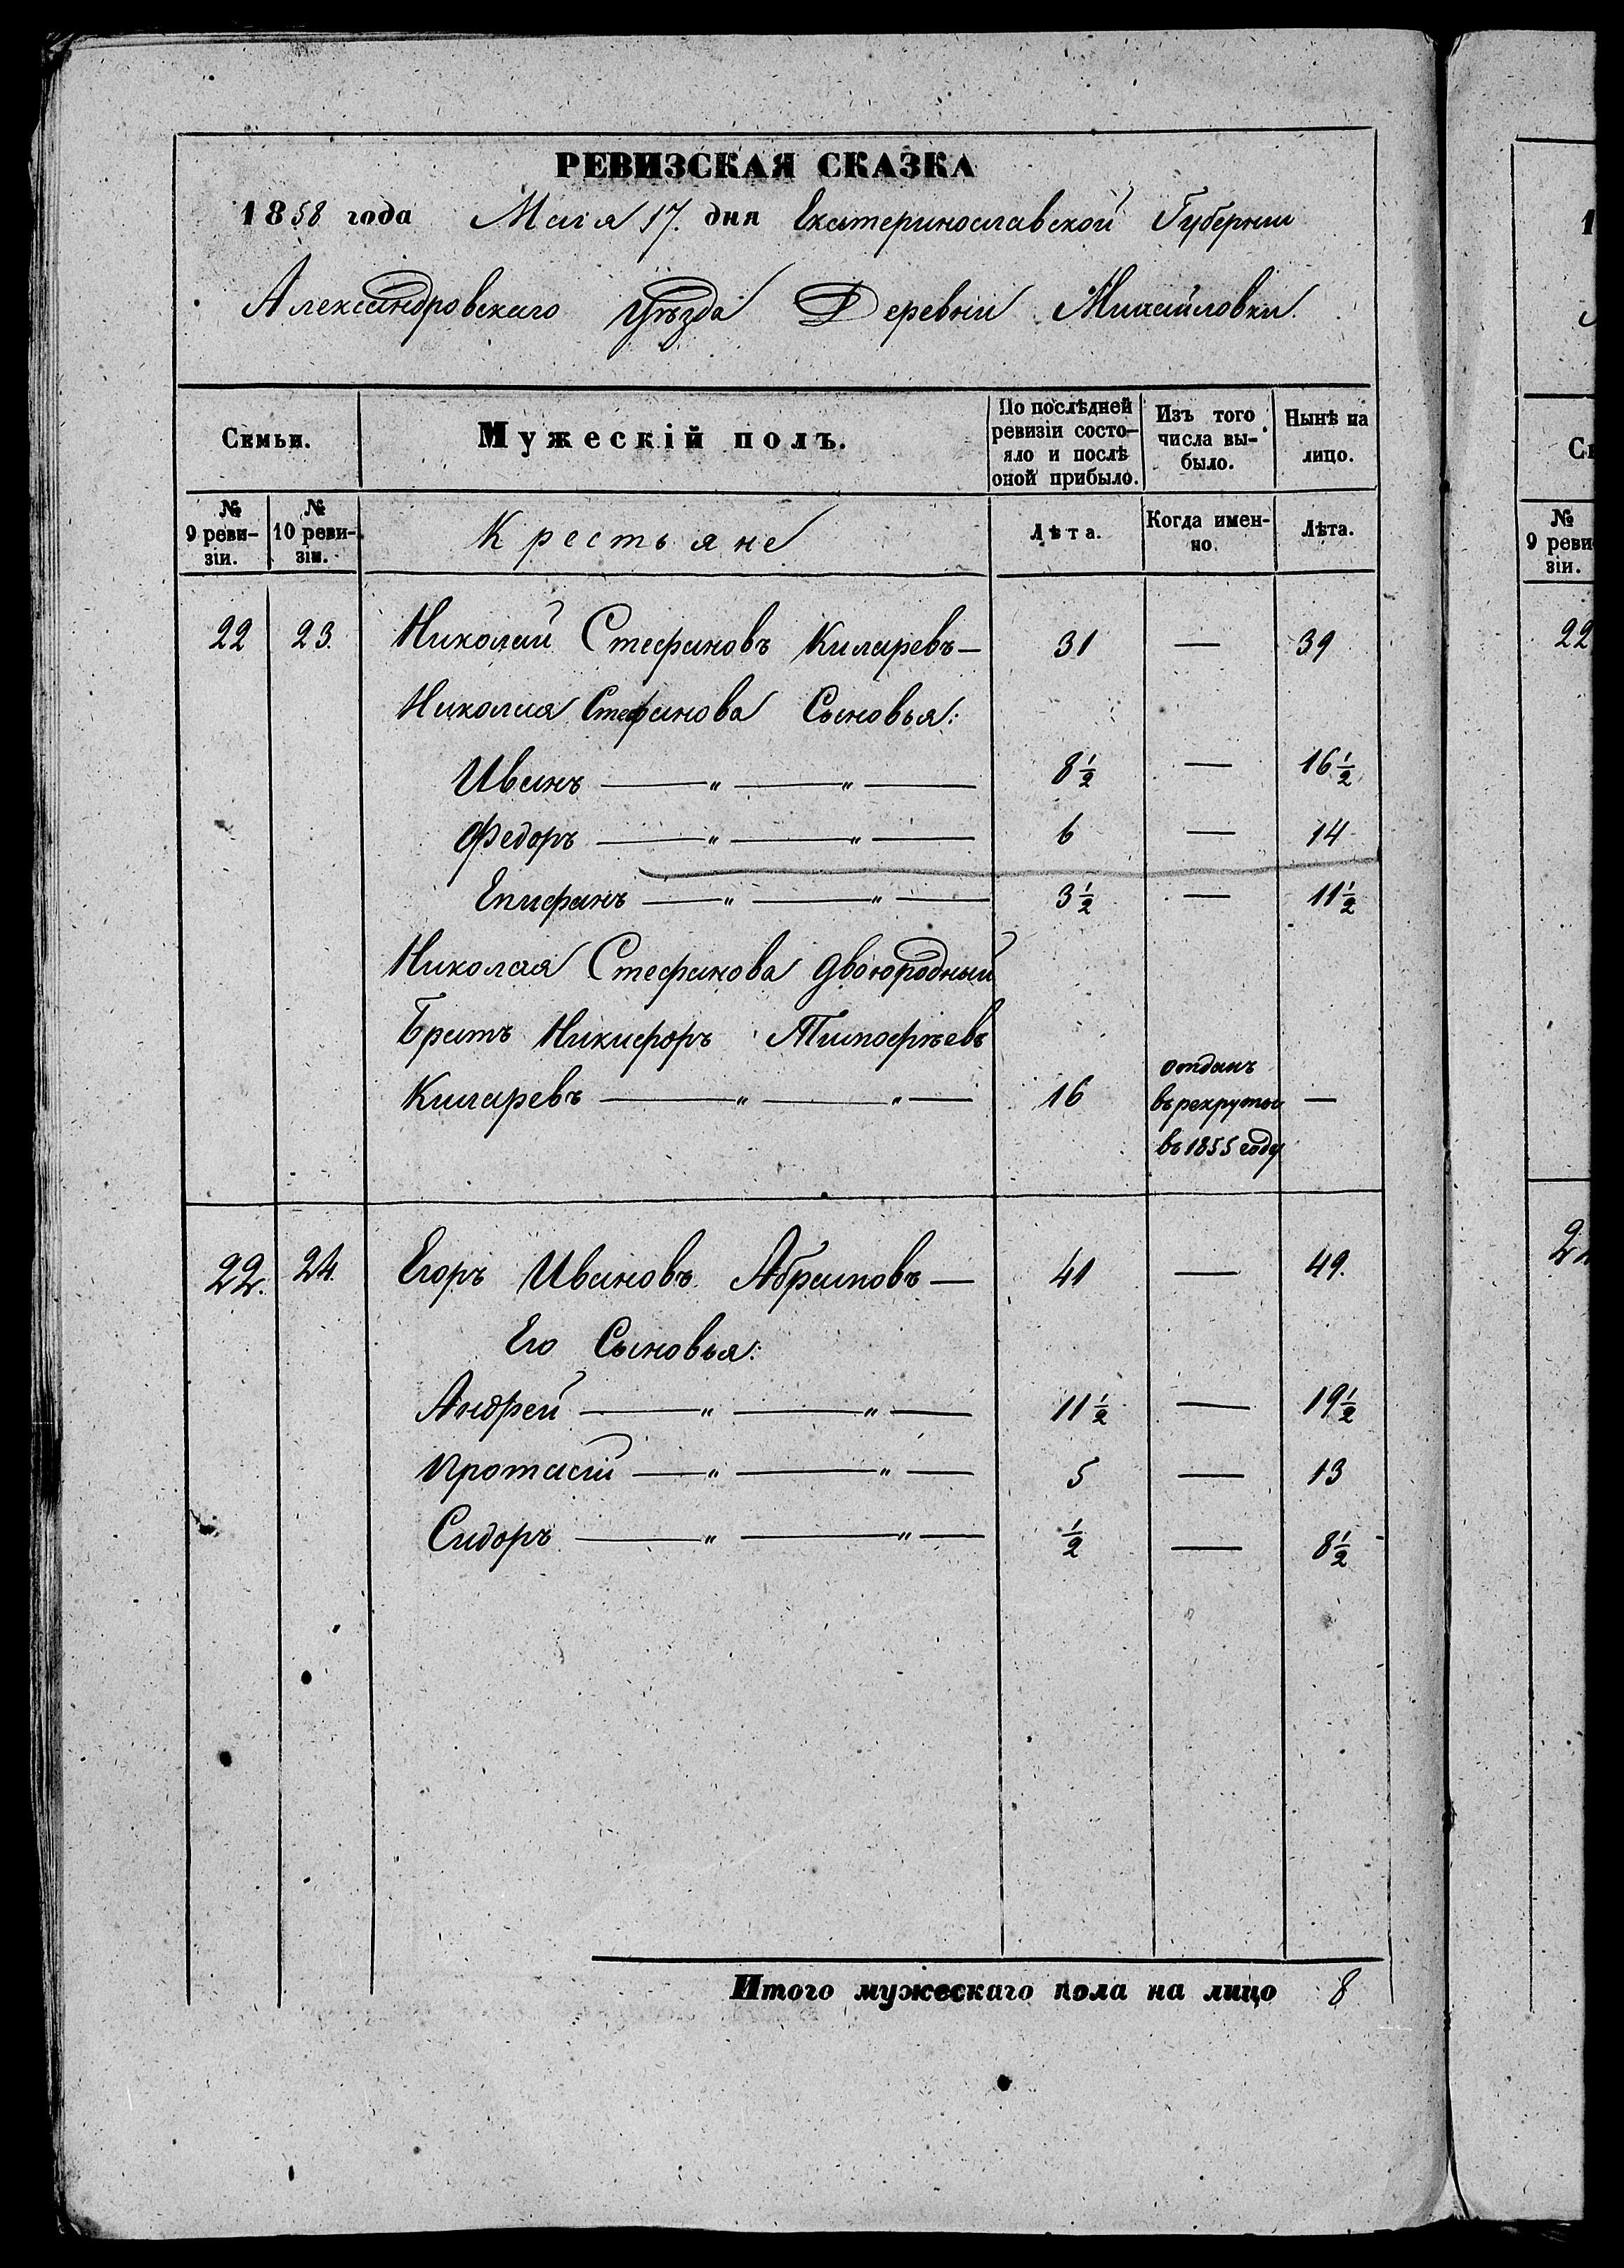 РЕВИЗСКАЯ СКАЗКА
1858 года Маія 17. дня Екатеринославской Губерніи
Александровскаго Уѣзда Деревни Михайловки.
Семьи.
Мужескій полъ.
По послѣдней ревизіи состо-
яло и послѣ
оной прибыло.
Изъ того
числа вы-
было.
Нынѣ на
лицо.
№
9 реви-
зіи.
№
10 реви-
зіи.
Крестьяне
Лѣта.
Когда имен-
но.
Лѣта.
22 23. Николай Стефановъ Киларевъ — 31 — 39
Николая Стефанова Сыновья:
Иванъ — „ — „ — 8½ — 16½
Федоръ — „ — „ — 6 — 14
Епифанъ — „ — „ — 3½ — 11½
Николая Стефанова двоюродный
Братъ Никифоръ Тимофѣевъ
Киларевъ — „ — „ — 16 отданъ
въ рекруты —
въ 1855 году
22. 24. Егоръ Ивановъ Абрамовъ — 41 — 49.
Его Сыновья:
Андрей — „ — „ — 11½ — 19½
Протасій — „ — „ — 5 — 13
Сидоръ — „ — „ — ½ — 8½
Итого мужескаго пола на лицо 8
№
9 реви
зіи.
22